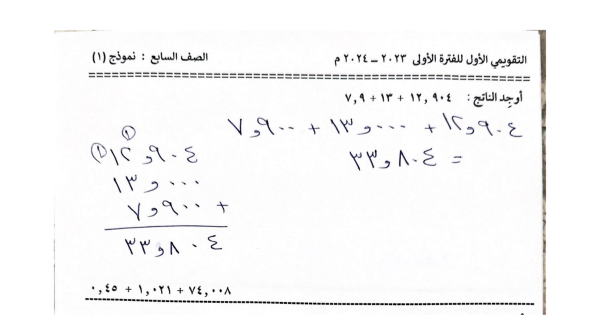 التقويمي الأول للفترة الأولى ٢٠٢٣ – ٢٠٢٤ م الصف السابع : نموذج (١)
أوجد الناتج : ١٢,٩٠٤ + ١٣ + ٧,٩
١٢و٩٠٤ + ١٣و٠٠٠ + ٧و٩٠٠
= ٣٣و٨٠٤
١
١ ١٢و٩٠٤
١٣و٠٠٠
٧و٩٠٠ +
٣٣و٨٠٤
٧٤,٠٠٨ + ١,٠٢١ + ٠,٤٥